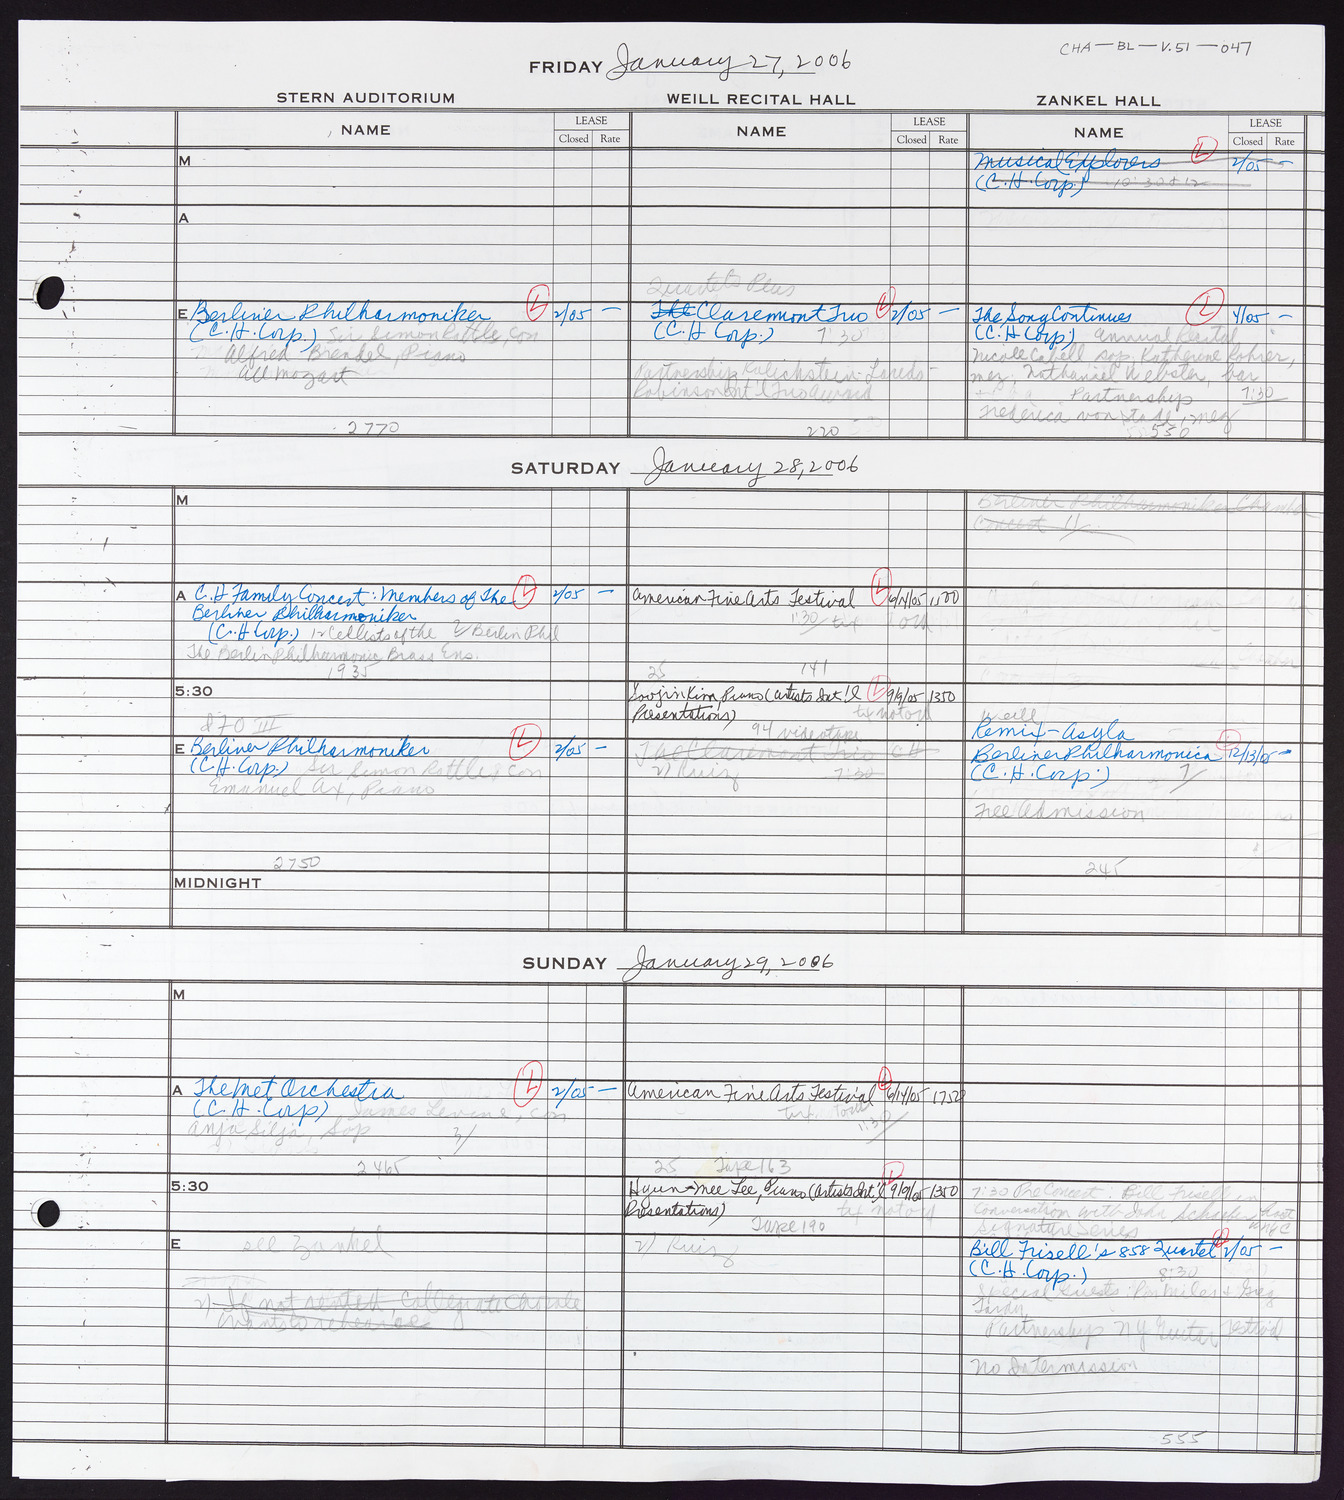 CHA-BL-V.51-047
FRIDAY January 27, 2006
STERN AUDITORIUM WEILL RECITAL HALL ZANKEL HALL
NAME LEASE Closed Rate NAME LEASE Closed Rate NAME LEASE Closed Rate
M
Musical Explorers L 2/05 -
(C.H. Corp.) 10:30 & 12
A
Quartets Plus
E Berliner Philharmoniker L 2/05 -
(C.H. Corp.) Sir Simon Rattle, Con
Alfred Brendel, Piano
All Mozart
2770
The Claremont Trio L 2/05 -
(C.H. Corp.) 7:30
Partnership Kalichstein-Laredo-
Robinson Int'l Trio Award
220
The Song Continues L 4/05 -
(C.H. Corp) Annual Recital
Nicole Cabell sop, Katherine Rohrer,
mez, Nathaniel Webster, bar
Partnership 7:30
Frederica von Stade, mez
550
SATURDAY January 28, 2006
M
Berliner Philharmoniker Chamber
Concert 11/
A C.H Family Concert: Members of the L 2/05 -
Berliner Philharmoniker
(C.H. Corp.) 12 Cellists of the Berlin Phil
The Berlin Philharmonic Brass Ens.
1935
American Fine Arts Festival L 6/14/05 1500
1:30/
25 141
5:30
870 III
Soojin Kim, Piano (Artists Int'l L 9/9/05 1350
Presentations)
94 videotape
E Berliner Philharmoniker L 2/05 -
(C.H. Corp.) Sir Simon Rattle, Con
Emanuel Ax, Piano
2750
The Claremont Trio CH
2) Ruiz 7:30
Weill
Remix-Asyla
Berliner Philharmonica L 12/13/05 -
(C.H. Corp.) 7/
Free Admission
245
MIDNIGHT
SUNDAY January 29, 2006
M
A The Met Orchestra L 2/05 -
(C.H. Corp) James Levine, Con
Anja Silja, Sop 3/
2465
American Fine Arts Festival L 6/14/05 1750
1:30/
25 Tape 163
5:30
Hyun-Mee Lee, Piano (Artists Int'l L 9/9/05 1350
Presentations)
Tape 190
7:30 PreConcert: Bill Frisell in
Conversation with John Schaefer, host
Signature Series WNYC
E see Zankel
2) If not rented, Collegiate Chorale
wants to rehearse
2) Ruiz
Bill Frisell's 858 Quartet L 2/05 -
(C.H. Corp.) 8:30
Special Guests: Ron Miles & Greg
Tardy
Partnership NY Guitar Festival
No Intermission
555